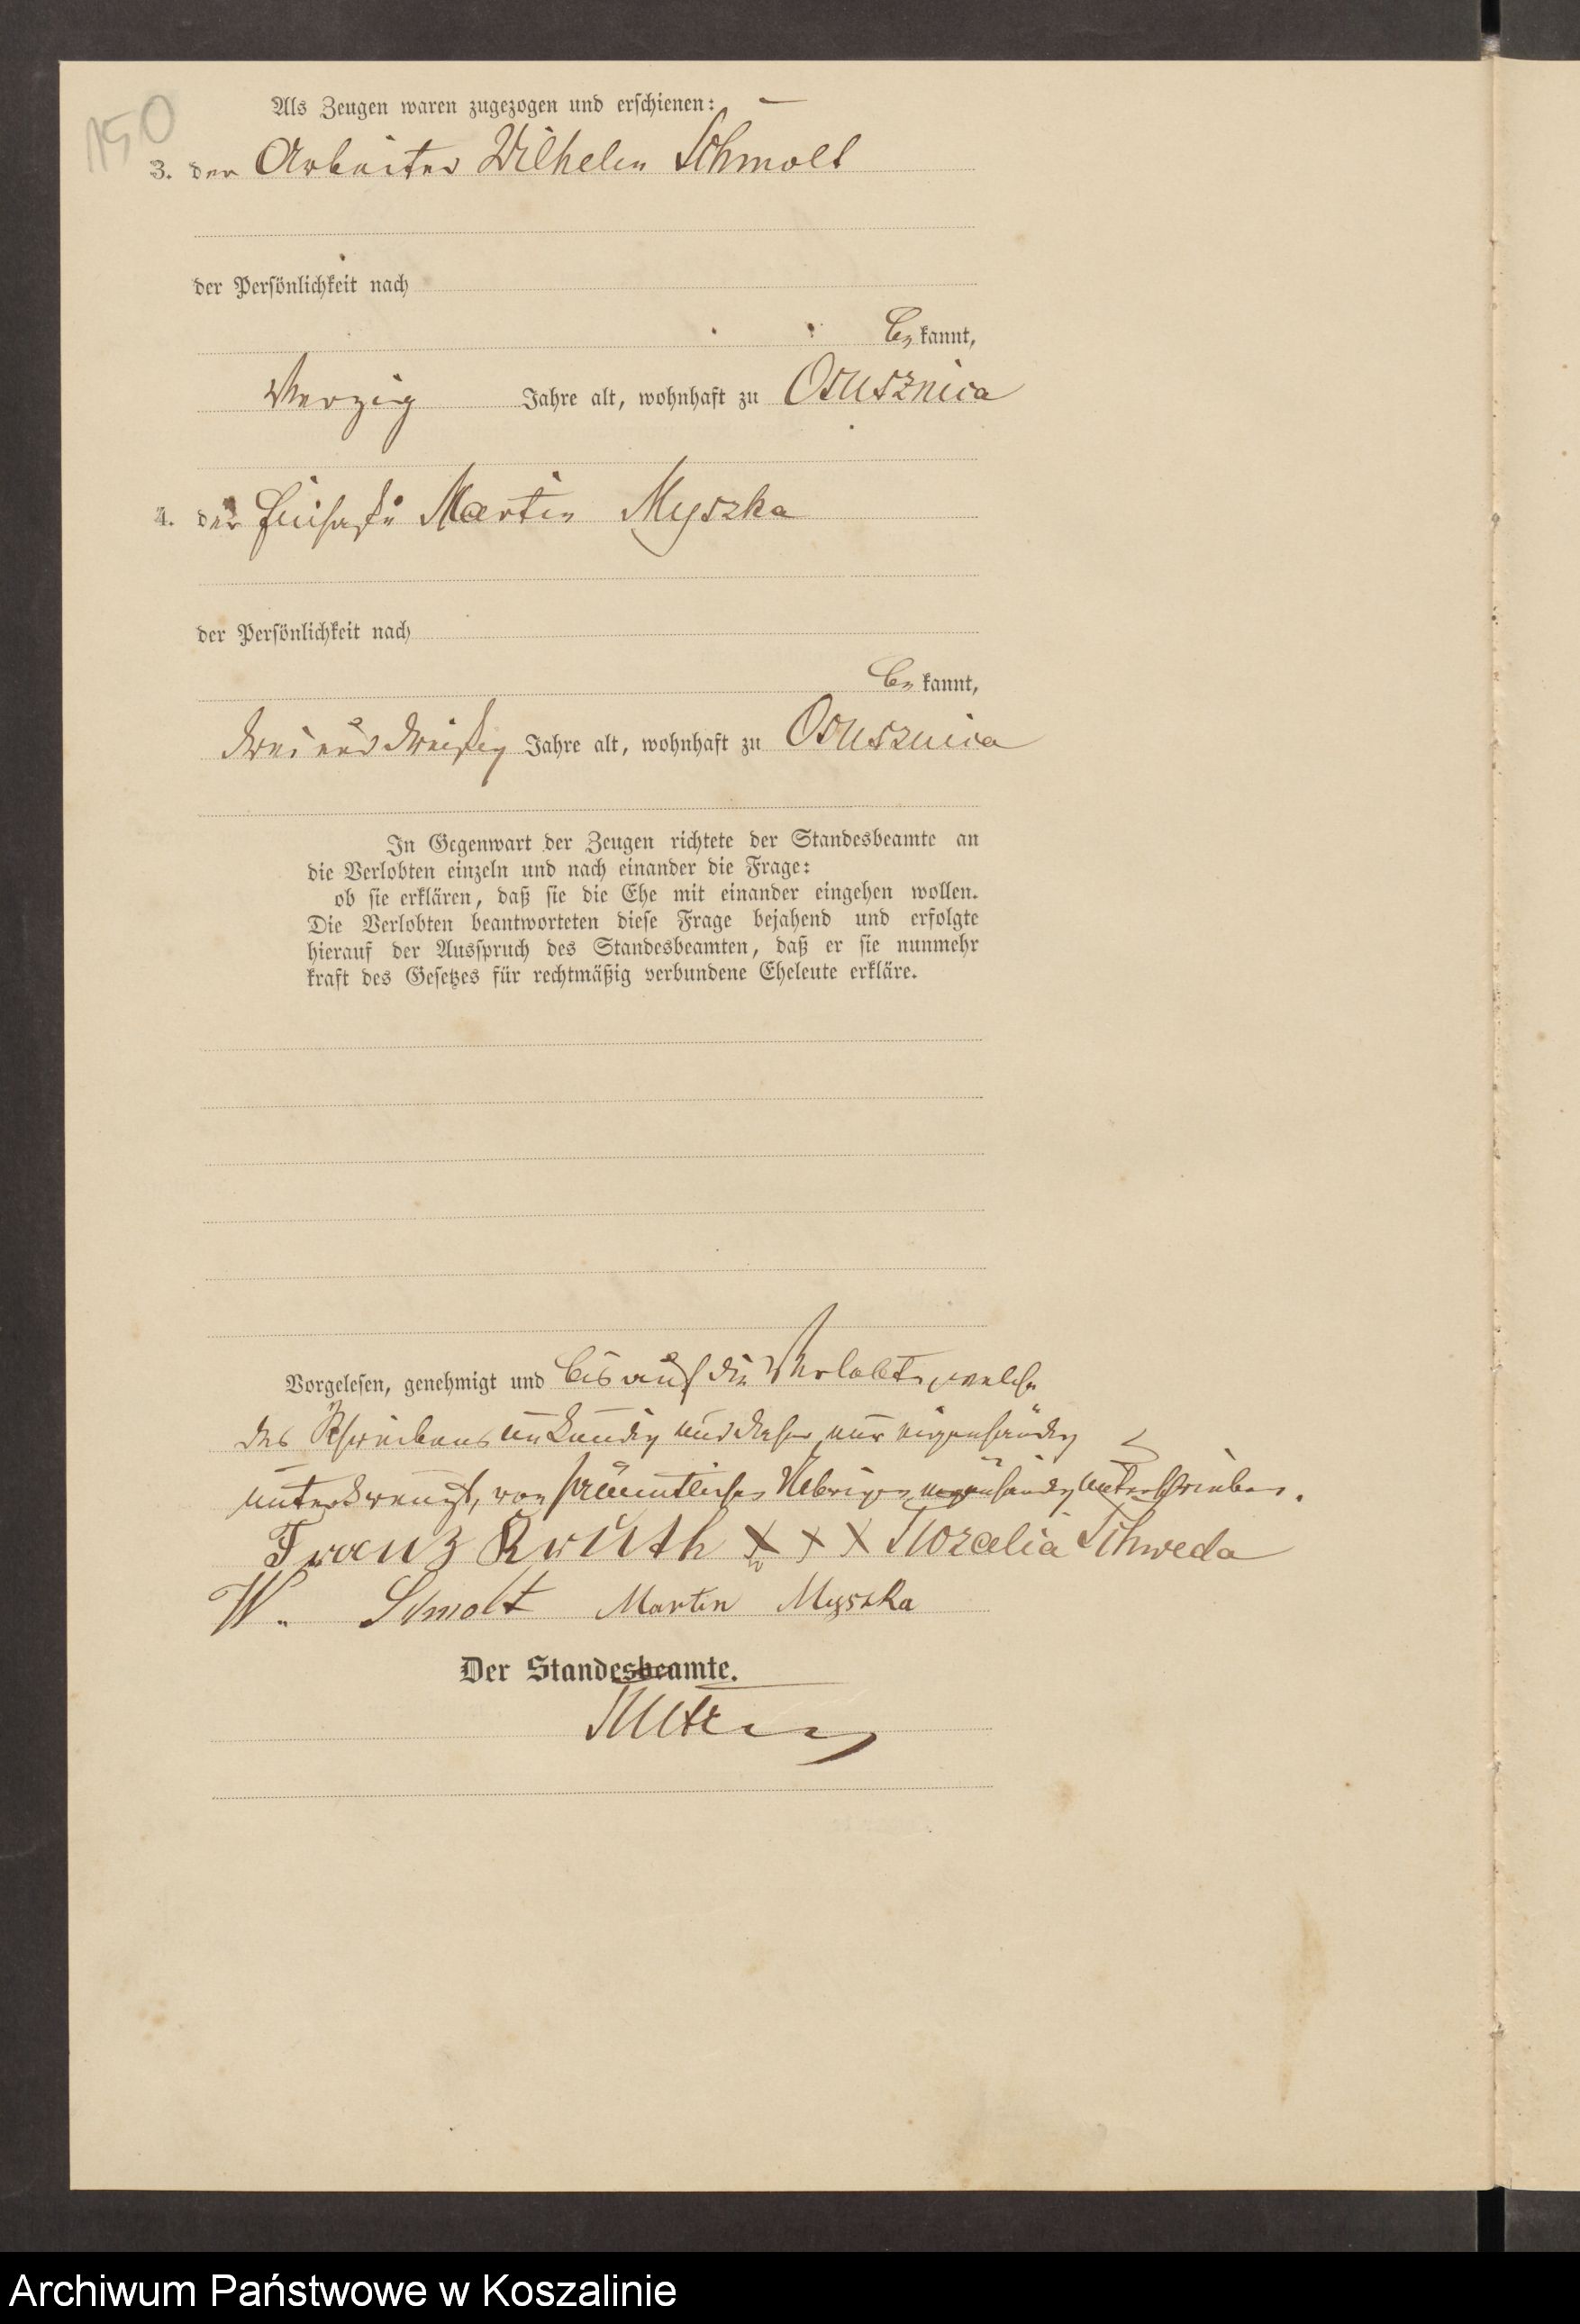 150
Als Zeugen waren zugezogen und erschienen:
3. der Arbeiter Wilhelm Schmolt
der Persönlichkeit nach
be kannt,
Vierzig Jahre alt, wohnhaft zu Osusznica
4. der Martin Myszka
der Persönlichkeit nach
be kannt,
drei und dreißig Jahre alt, wohnhaft zu Osusznica
In Gegenwart der Zeugen richtete der Standesbeamte an
die Verlobten einzeln und nach einander die Frage:
ob sie erklären, daß sie die Ehe mit einander eingehen wollen.
Die Verlobten beantworteten diese Frage bejahend und erfolgte
hierauf der Ausspruch des Standesbeamten, daß er sie nunmehr
kraft des Gesetzes für rechtmäßig verbundene Eheleute erkläre.
Vorgelesen, genehmigt und bis auf die Verlobte, welche
des Schreibens unkundig und daher nur eigenhändig
unterkreuzt, von sämmtlichen Uebrigen eigenhändig unterschrieben.
Franz Kruth X X X Rozalia Schweda
W. Schmolt Martin Myszka
Der Standesbeamte.
Archiwum Państwowe w Koszalinie